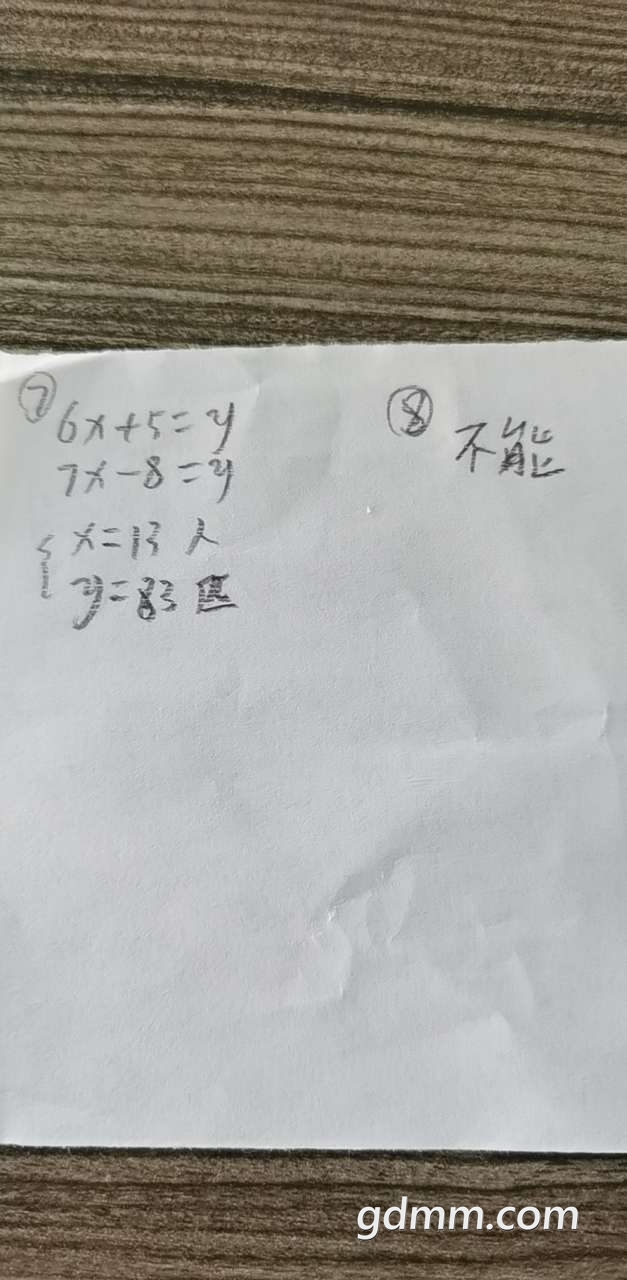 ⑦
6x+5=y
7x-8=y
{ x=13 人
y=83 匹
⑧
不能
gdmm.com